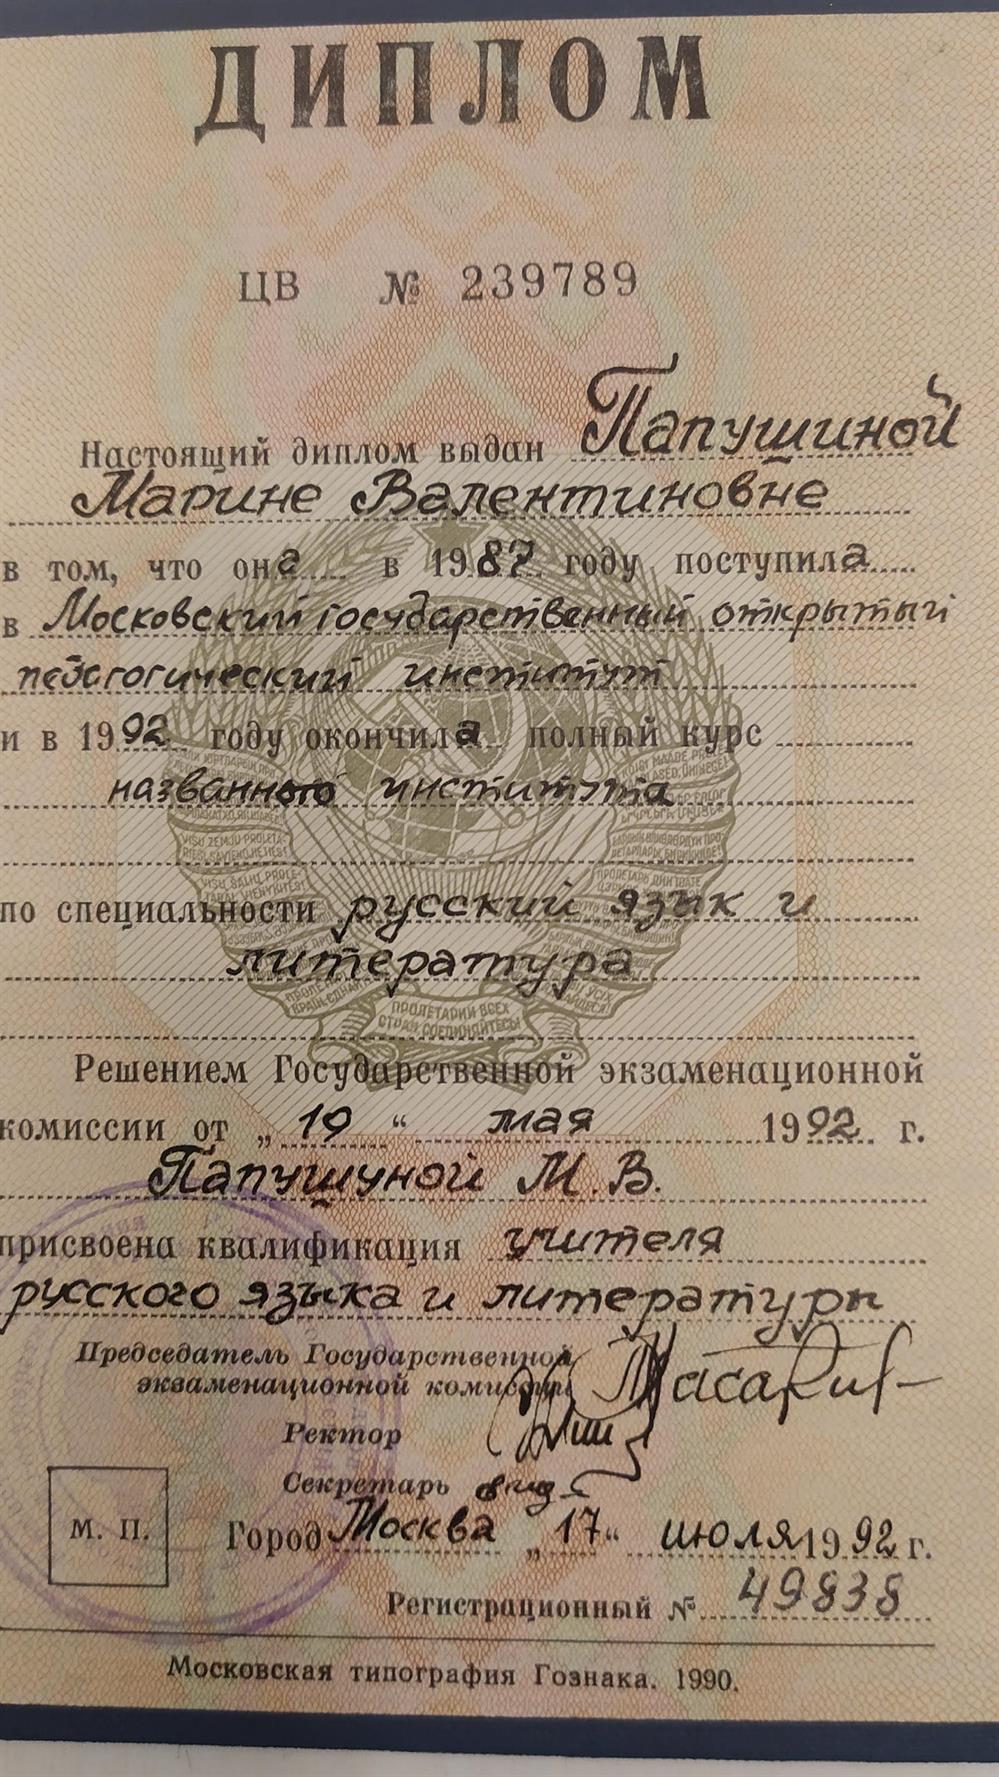 ДИПЛОМ
ЦВ № 239789
Настоящий диплом выдан Папушиной
Марине Валентиновне
в том, что она в 1987 году поступила
в Московский государственный открытый
педагогический институт
и в 1992 году окончила полный курс
названного института
по специальности русский язык и
литература
ПРОЛЕТАРИИ ВСЕХ
СТРАН, СОЕДИНЯЙТЕСЬ!
Решением Государственной экзаменационной
комиссии от „19“ мая 1992 г.
Папушиной М. В.
присвоена квалификация учителя
русского языка и литературы
Председатель Государственной
экзаменационной комиссии
Ректор
Секретарь
М. П.
Город Москва „17“ июля 1992 г.
Регистрационный № 49838
Московская типография Гознака. 1990.